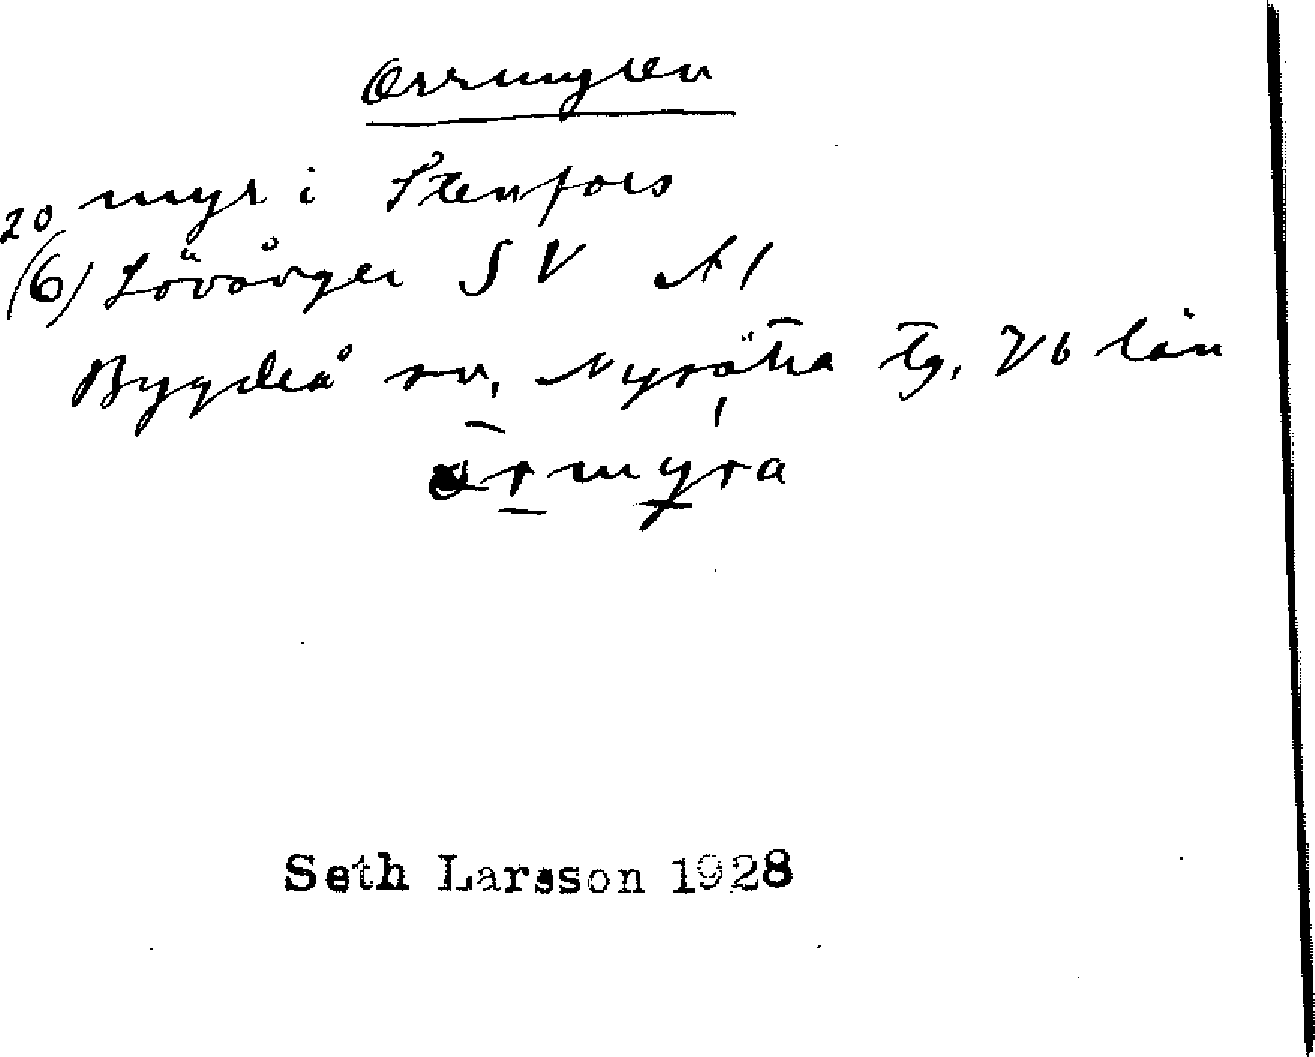 Orrmyren
20 myr i Stenfors
(6) Lövånger SV A1
Bygdeå sn, Nysätra tg, Vb län
ormyra
Seth Larsson 1928